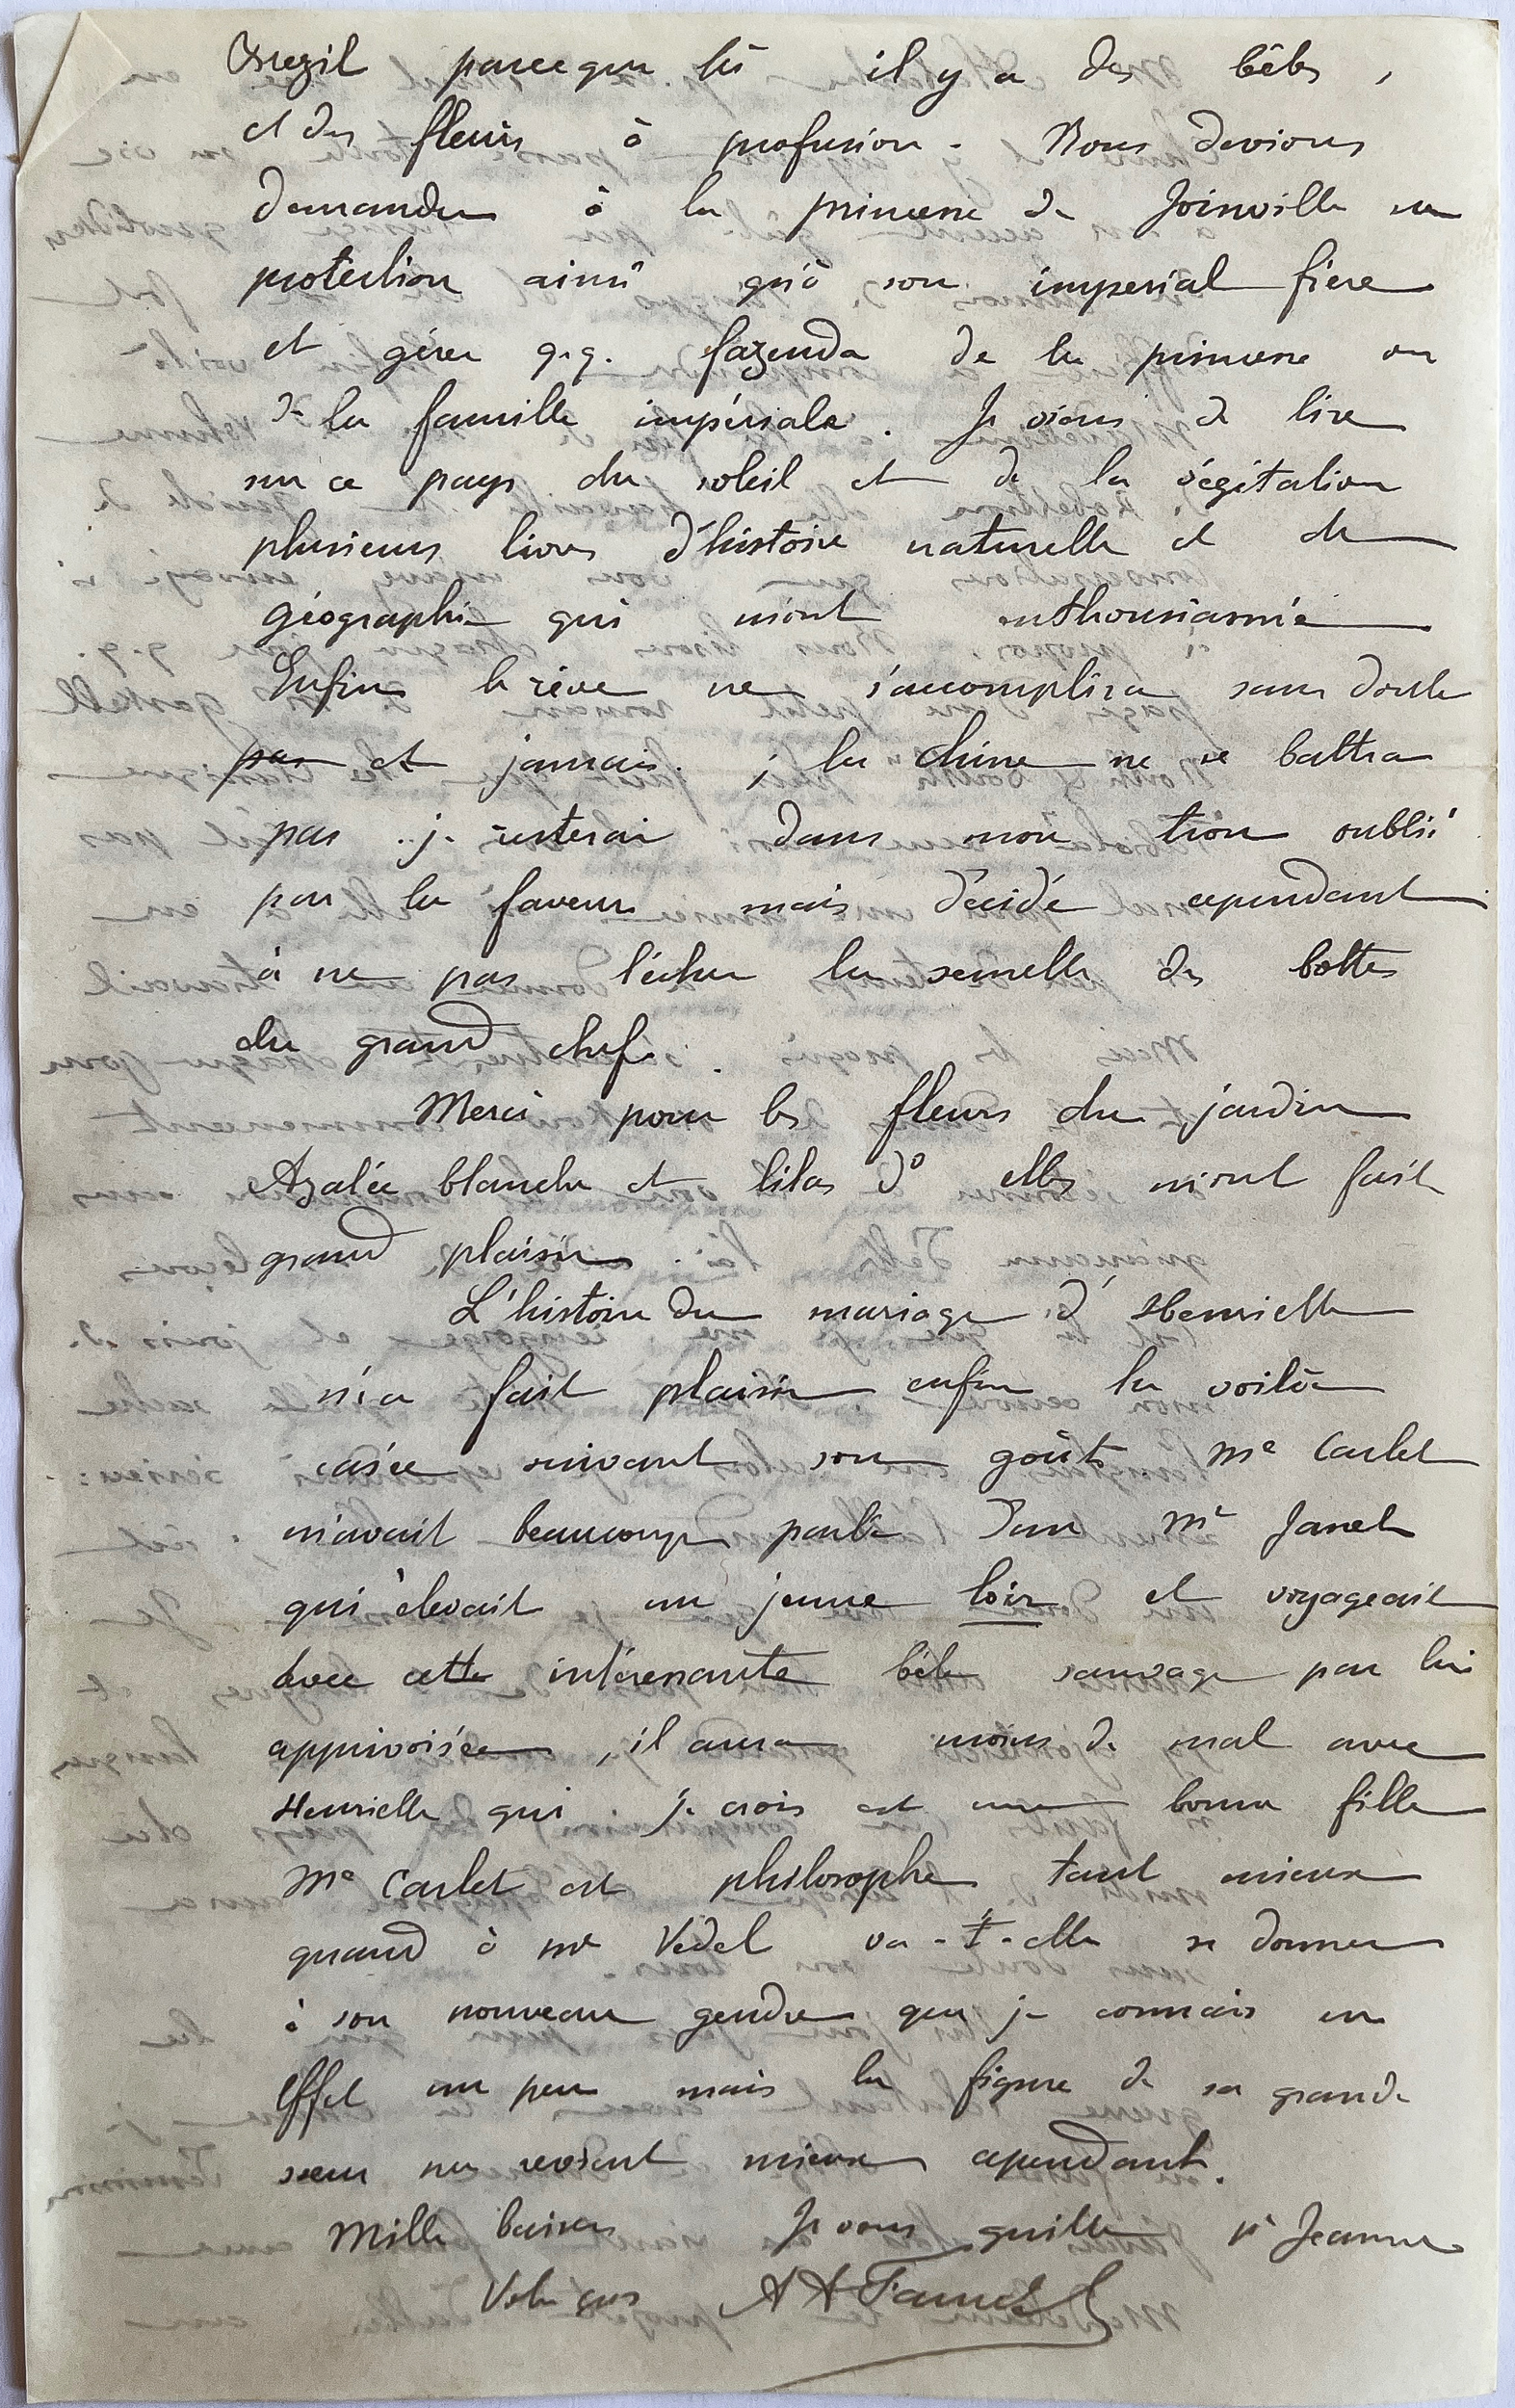 Brezil parceque là il y a des bêtes,
et des fleurs à profusion. Nous devions
demander à la princesse de Joinville sa
protection ainsi qu'à son imperial frère
et gérer q.q. fazenda de la princesse ou
de la famille impériale. Je viens de lire
sur ce pays du soleil et de la végétation
plusieurs livres d'histoire naturelle et de
géographie qui m'ont enthousiasmé
Enfin le rêve ne s'accomplira sans doute
pas et jamais ; la chine ne se battra
pas .. je resterai dans mon trou oublié
par la faveur mais décidé cependant
à ne pas lécher la semelle des bottes
du grand chef.
Merci pour les fleurs du jardin
Azalée blanche et lilas do elles m'ont fait
grand plaisir.
L'histoire du mariage d'Henriette
m'a fait plaisir enfin la voilà
casée suivant son goût Me Carlet
m'avait beaucoup parlé d'un Mr Janet
qui élevait un jeune loir et voyageait
avec cette intéressante bête sauvage par lui
apprivoisée, il aura moins de mal avec
Henriette qui je crois est une bonne fille
Me Carlet est philosophe tant mieux
quand à me Védel va-t-elle se donner
à son nouveau gendre que je connais en
effet un peu mais la figure de sa grande
sœur me revient mieux cependant.
Mille baisers Je vous quitte Jeanne
Votre gros